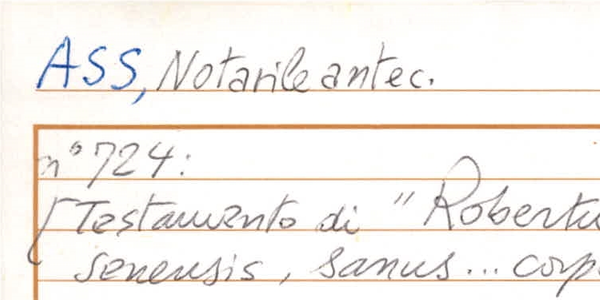 ASS, Notarile antec.
n° 724:
[Testamento di "Robertu
senensis, sanus... corp